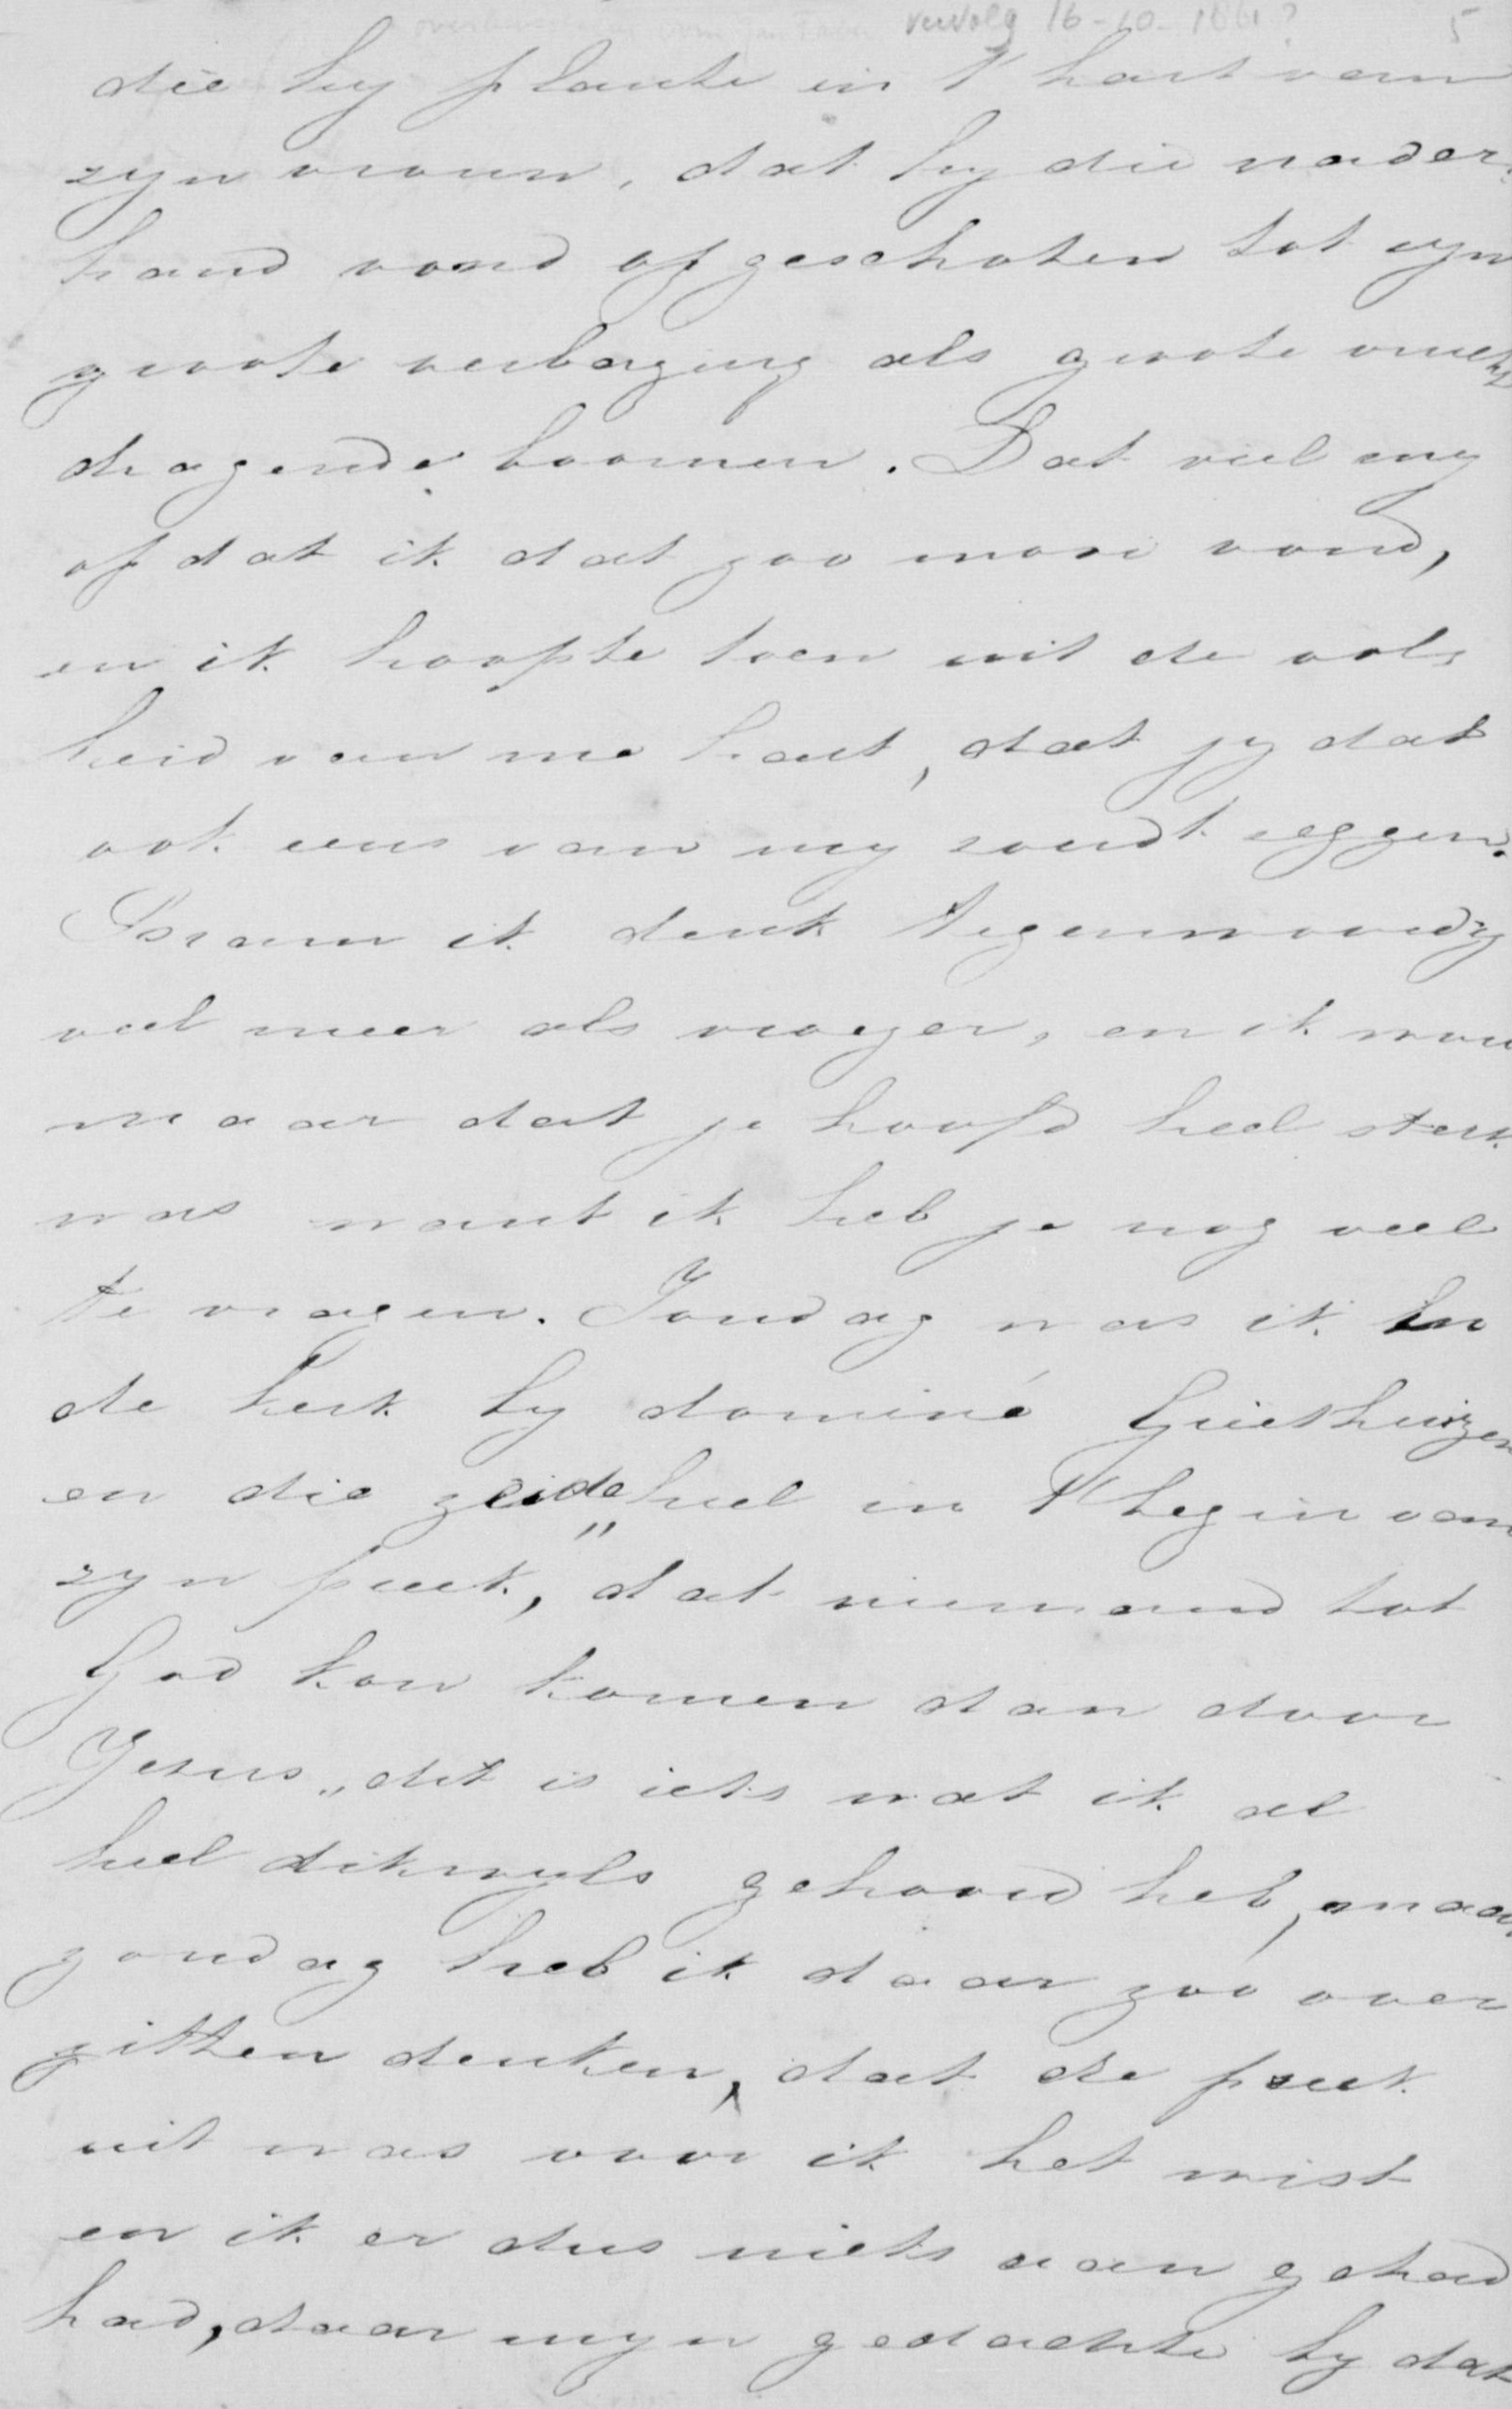 vervolg 16-10-1861? 5
die hy plante in 't hart van
zyn vrouw, dat hy die nader,
hand vond opgeschoten tot zyn
groote verbazing als groote vrucht
dragende boomen. Dat viel my
op dat ik dat zoo mooi vond,
en ik hoopte toen uit de vol,
heid van me hart, dat jy dat
ook eens van my zoudt zeggen.
Bram ik denk tegenwoordig
veel meer als vroeger, en ik wou
maar dat je hoofd heel sterk
was want ik heb je nog veel
te vragen. Zondag was ik in
de kerk by dominé Griethuizen
en die zeide heel in 't begin van
zyn preek, „dat niemand tot
God kon komen dan door
Jesus„ dit is iets wat ik al
heel dikwyls gehoord heb, maar
zondag heb ik daar zoó over
zitten denken, dat de preek
uit was voor ik het wist
en ik er dus niets aan gehad
had, daar myn gedachte by dat